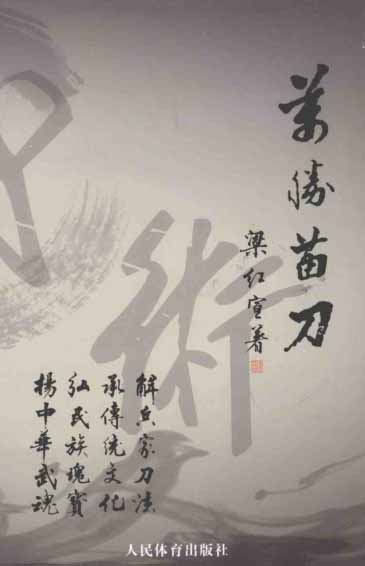 萬勝苗刀
梁红宣著
解兵家刀法
承傳统文化
弘民族瑰寳
揚中華武魂
術
人民体育出版社